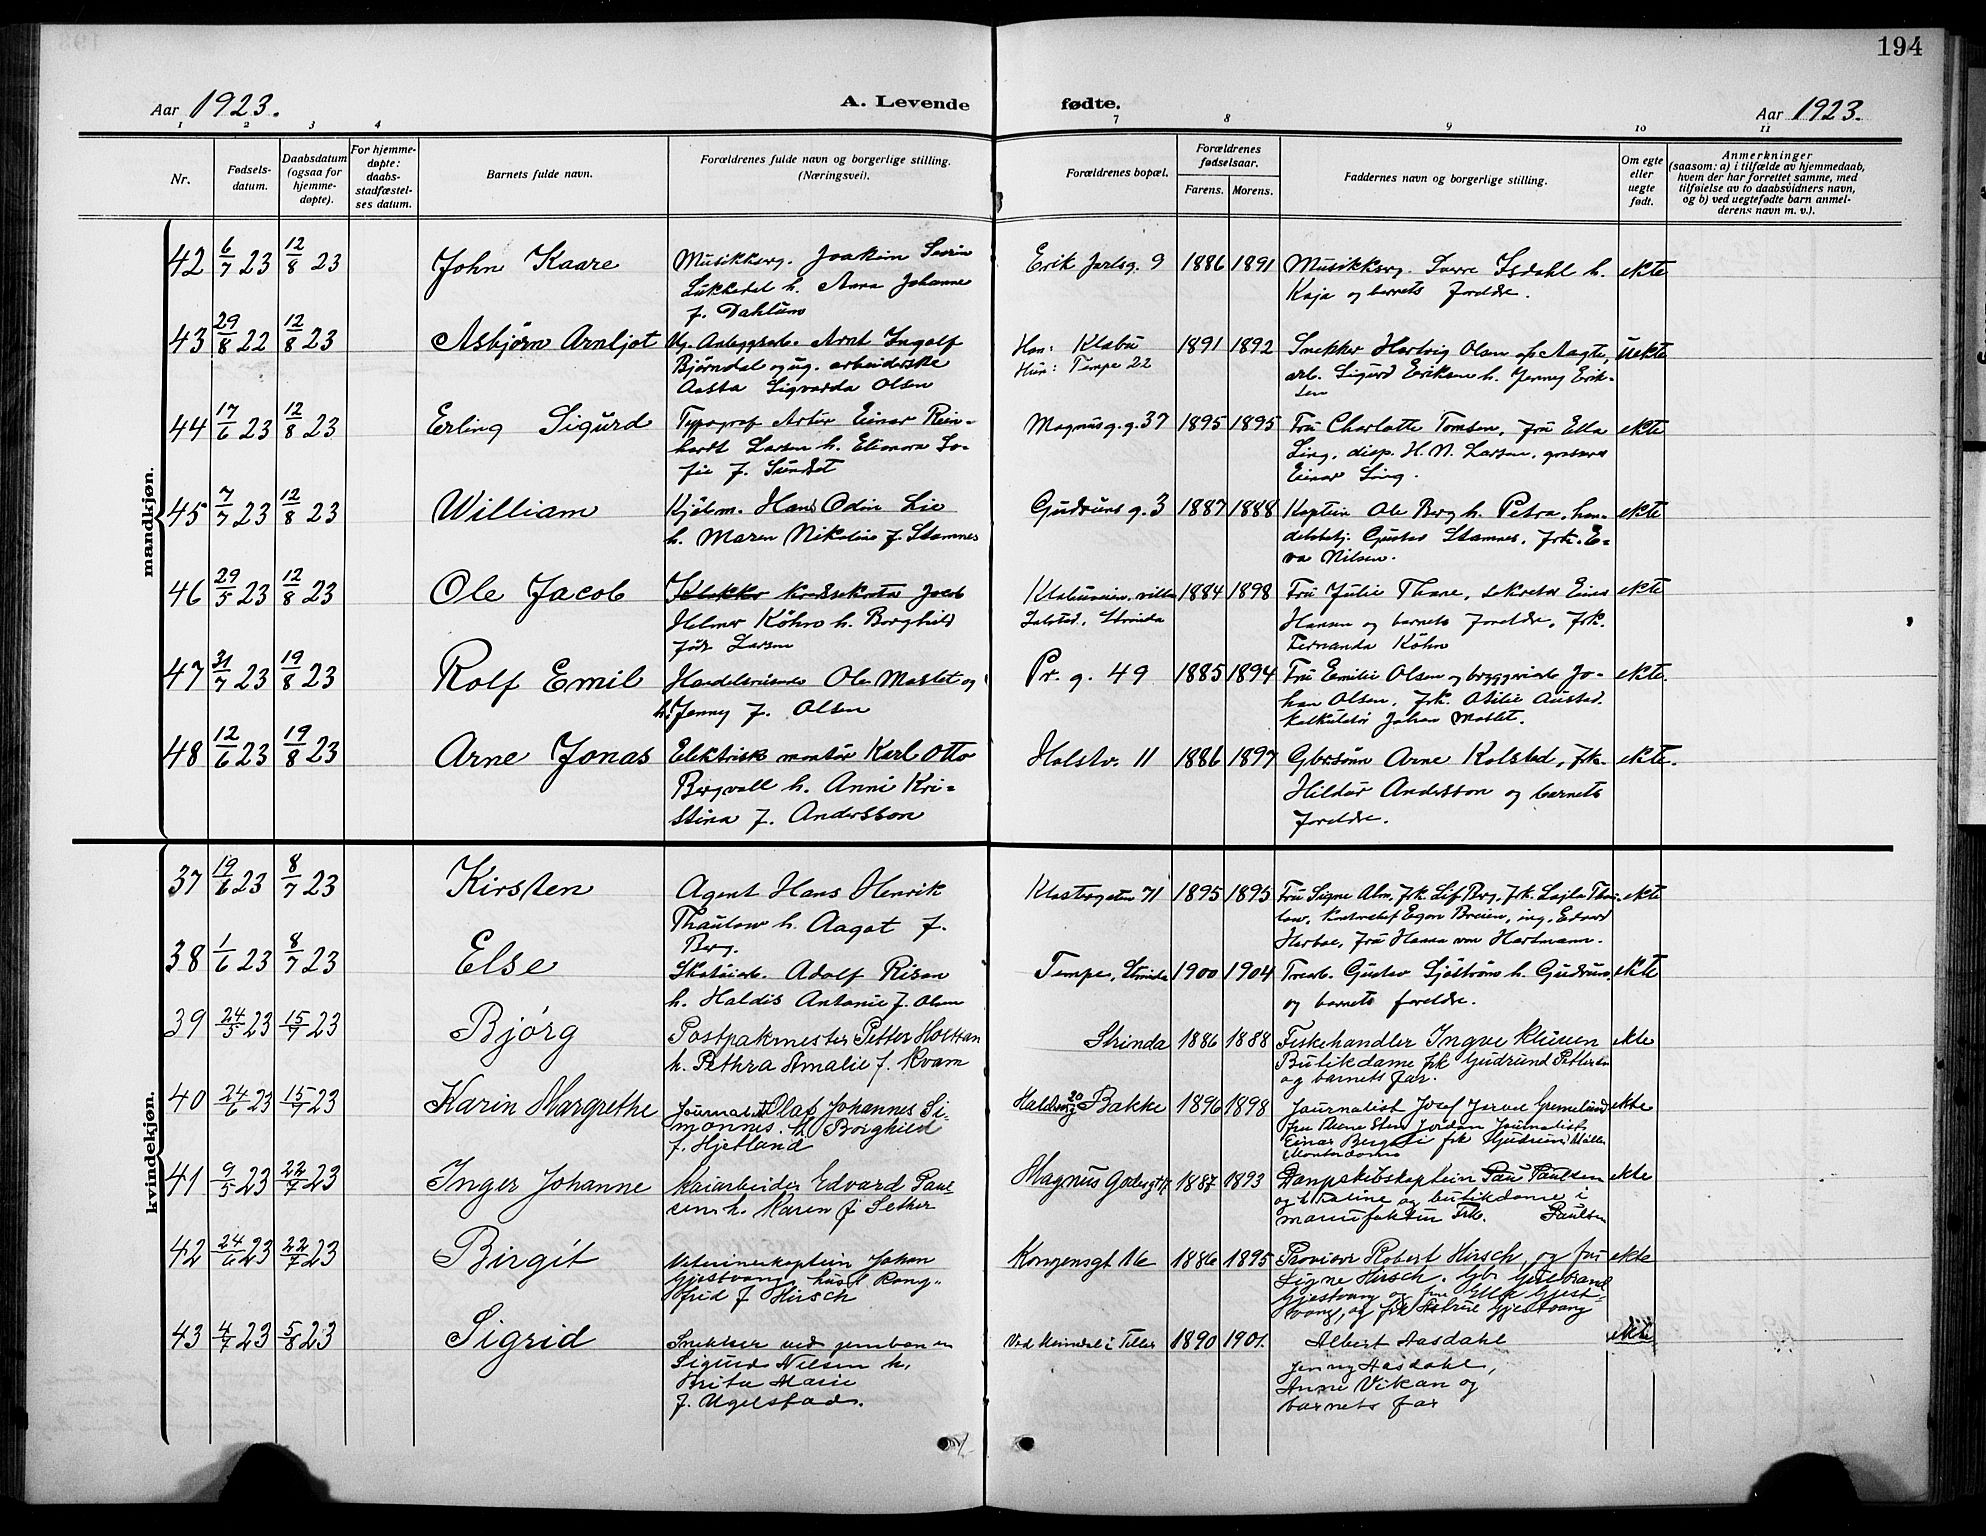 194
Aar 1923.
A. Levende fødte.
Aar 1923.
1 2 3 4 7 8 9 10 11
Nr.
Fødsels-
datum.
Daabsdatum
(ogsaa for
hjemme-
døpte).
For hjemme-
døpte:
daabs-
stadfæstel-
ses datum.
Barnets fulde navn.
Forældrenes fulde navn og borgerlige stilling.
(Næringsvei).
Forældrenes bopæl.
Forældrenes
fødselsaar.
Farens. Morens.
Faddernes navn og borgerlige stilling.
Om egte
eller
uegte
født.
Anmerkninger
(saasom: a) i tilfælde av hjemmedaab,
hvem der har forrettet samme, med
tilføielse av to daabsvidners navn,
og b) ved uegtefødte barn anmel-
derens navn m. v.).
mandkjøn.
42 6/7 23 12/8 23 John Kaare
Musikkserg. Joakim
h. Anna Johanne
f. Dahlum
Erik Jarlsg. 9 1886 1891
Musikkserg. Sverre Isdahl h.
Kaja og barnets foreldre.
ekte
43 29/8 22 12/8 23 Asbjørn Arnljot
Ug. Anleggsarb. Arnt Ingolf
Bjørndal og ug. arbeiderske
Aasta Sigvarda Olsen
Han: Klæbu
Hun: Tempe 22
1891 1892
Snekker Hartvig Olsen og Aagte,
arb. Sigurd Eriksen h. Jenny Erik-
sen
uekte
44 17/6 23 12/8 23 Erling Sigurd
Typograf Artur Einar Rein-
hardt Larsen h. Elionora So-
fie f. Sundset
Magnus g. g. 37 1895 1895
Fru Charlotte Tomsen, fru Ella
Ling, disp. H. N. Larsen,
Einar Ling.
ekte
45 7/7 23 12/8 23 William
Kjølm. Hans Odin Lie
h. Maren Nikoline f. Stamnes
Gudruns g. 3 1887 1888
Kaptein Ole Berg h. Petra, han-
delsbetj. Gustav Stamnes, frk. E-
va Nilsen.
ekte
46 29/5 23 12/8 23 Ole Jacob
Jacob
Helmer Köhn h. Borghild
født Larsen
Klæbuveien, villa
Strinda
1884 1898
Fru Julie Thane, sekretær Einar
Hansen og barnets foreldre, frk.
Fernanda Köhn
ekte
47 31/7 23 19/8 23 Rolf Emil
Handelsreisende Ole Moslet og
h. Jenny f. Olsen
Pr. g. 49 1885 1894
Fru Emilie Olsen og byggmester Jo-
han Olsen, frk. Otilie Austad,
kalkulatør Johan Moslet.
ekte.
48 12/6 23 19/8 23 Arne Jonas
Elektrisk montør Karl Otto
Bergvall h. Anni Kri-
stina f. Andersson
Holstv. 11 1886 1897
Gbrsønn Arne Kolstad, frk.
Hildur Andersson og barnets
foreldre.
ekte.
kvindekjøn.
37 19/6 23 8/7 23 Kirsten
Agent Hans Henrik
Thaulow h. Aagot f.
Berg.
Klostergaten 71 1895 1895
Fru Signe Alm, frk. Lif Berg, frk. Lajla Thau-
low, kontorchef Egon Breien, ing. Edvard
Harboe, fru Hanna von Hartmann.
ekte
38 1/6 23 8/7 23 Else
Skotøiarb. Adolf Risan
h. Haldis Antonie f. Olsen
Tempe, Strinda 1900 1904
Trearb. Gustav Sjøstrøm h. Gudrun
og barnets foreldre.
ekte
39 24/5 23 15/7 23 Bjørg
Postpakmester Petter Holttan
h. Pethra Amalie f. Kvam
Strinda 1886 1888
Fiskehandler Ingve Kluven
Butikdame frk Gudrund Pettersen
og barnets far.
ekte
40 24/6 23 15/7 23 Karin Margrethe
Journalist Olaf Johannes Si-
monnes. h. Borghild
f. Hjetland
20 Bakke 1896 1898
Journalist Josef Jervel Gremelund
fru Jordan Journalist
Einar frk Gudrun Møller
Kontordame
ekte
41 9/5 23 22/7 23 Inger Johanne
Kaiarbeider Edvard Paul
sen h. Karen f Sether
Magnus Godesgt 1887 1893
Dampskibskaptein Paulsen
og og butikdame i
manufaktur Frk. Paulsen
ekte
42 24/6 23 22/7 23 Birgit
Veterinerkaptein Johan
Gjestvang, hust Rang-
frid f Hirsch
Kongensgt 16 1886 1895
Provisor Robert Hirsch, og fru
Signe Hirsch. Gbr Gulbrand
Gjestvang og fru Ella Gjest-
vang, og frk Astrid Gjestvang
ekte
43 4/7 23 5/8 23 Sigrid
Snekker ved jernbanen
Sigurd Nilsen h.
Brita Marie
f. Ugelstad.
Ved Heimdal i Tiller 1890 1901.
Albert Aasdahl
Jenny Aasdahl,
Anne Vikan og
barnets far
ekte